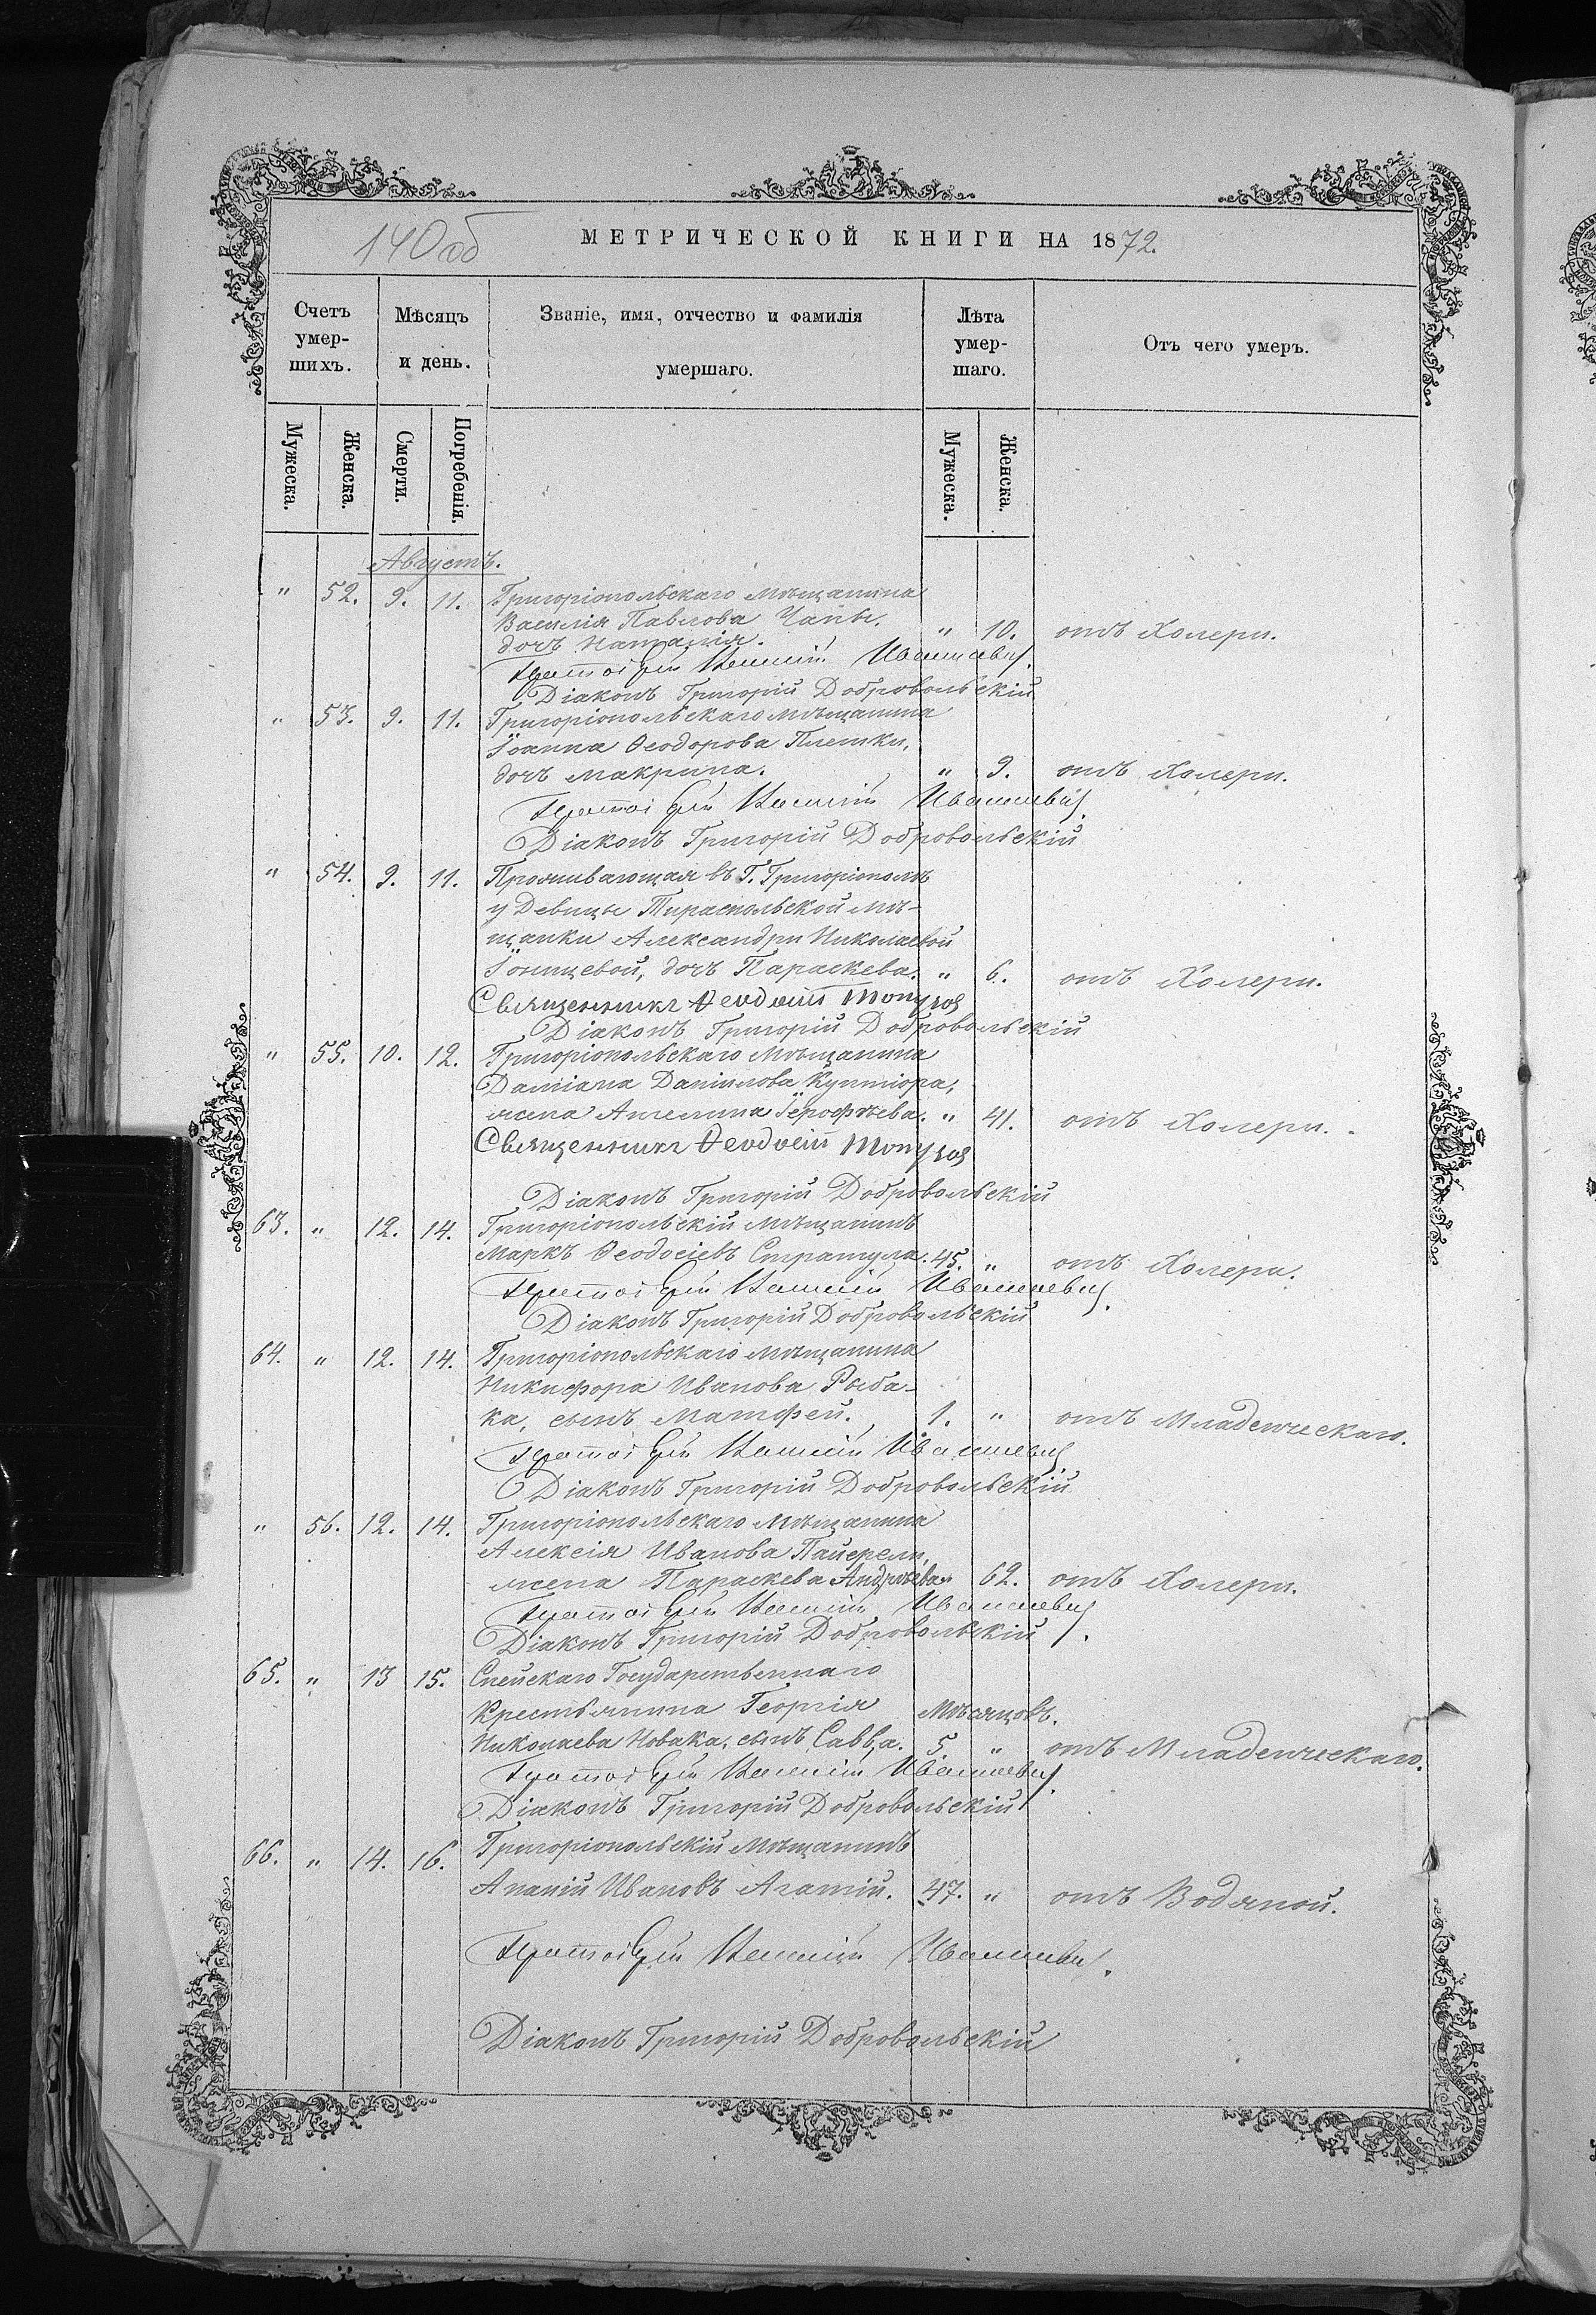 140 об
МЕТРИЧЕСКОЙ КНИГИ НА 1872.
Счетъ умер-шихъ.
Мѣсяцъ и день.
Званіе, имя, отчество и фамилія умершаго.
Лѣта умер-шаго.
Отъ чего умеръ.
Мужеска. Женска. Смерти. Погребенія. Мужеска. Женска.
Августъ.
" 52. 9. 11. Григоріопольскаго Мѣщанина
Василія Павлова Чапы.
дочь Наталія. " 10. отъ Холеры.
Протоіерей Ивашевич.
Діаконъ Григорій Добровольскій
" 53. 9. 11. Григоріопольскаго мѣщанина
Іоанна Ѳеодорова Плешки,
дочь Макрина. " 9. отъ Холеры.
Протоіерей Ивашевич.
Діаконъ Григорій Добровольскій
" 54. 9. 11. Проживающая въ Г. Григоріополѣ
у Девицы Тираспольской Мѣ-
щанки Александры Николаевой
Іоницевой, дочь Параскева. " 6. отъ Холеры.
Священникъ Ѳеодосій
Діаконъ Григорій Добровольскій
" 55. 10. 12. Григоріопольскаго Мѣщанина
Даміана Даніилова Кунтіора,
жена Ангелина Іерофѣева. " 41. отъ Холеры.
Священникъ Ѳеодосій
Діаконъ Григорій Добровольскій
63. " 12. 14. Григоріопольскій Мѣщанинъ
Маркъ Ѳеодосіевъ Стратула. 45. " отъ Холеры.
Протоіерей Ивашевич.
Діаконъ Григорій Добровольскій
64. " 12. 14. Григоріопольскаго Мѣщанина
Никифора Иванова Рыба-
ка, сынъ Матфей. 1. " отъ Младенческаго.
Протоіерей Ивашевич
Діаконъ Григорій Добровольскій
" 56. 12. 14. Григоріопольскаго Мѣщанина
Алексія Иванова Пацерели,
жена Параскева Андрѣева " 62. отъ Холеры.
Протоіерей Ивашевич.
Діаконъ Григорій Добровольскій
65. " 13 15. Спейскаго Государственнаго
Крестьянина Георгія Мѣсяцовъ.
Николаева Новака, сынъ Савва. 5. " отъ Младенческаго.
Протоіерей Ивашевич.
Діаконъ Григорій Добровольскій
66. " 14. 16. Григоріопольскій Мѣщанинъ
Ананій Ивановъ Агатій. 47. " отъ Водяной.
Протоіерей Ивашевич.
Діаконъ Григорій Добровольскій